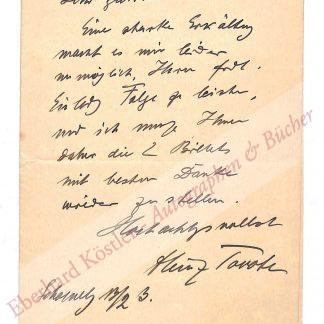 Eine starke Erkältung
macht es mir leider
unmöglich, Ihrer frdl.
Einladg Folge zu leisten,
und ich muss Ihnen
daher die 2 Billets
mit bestem Danke
wieder zu stellen.
Hochachtungsvollst
Heinz Tovote
13/2 3.
Eberhard Köstler Autographen & Bücher